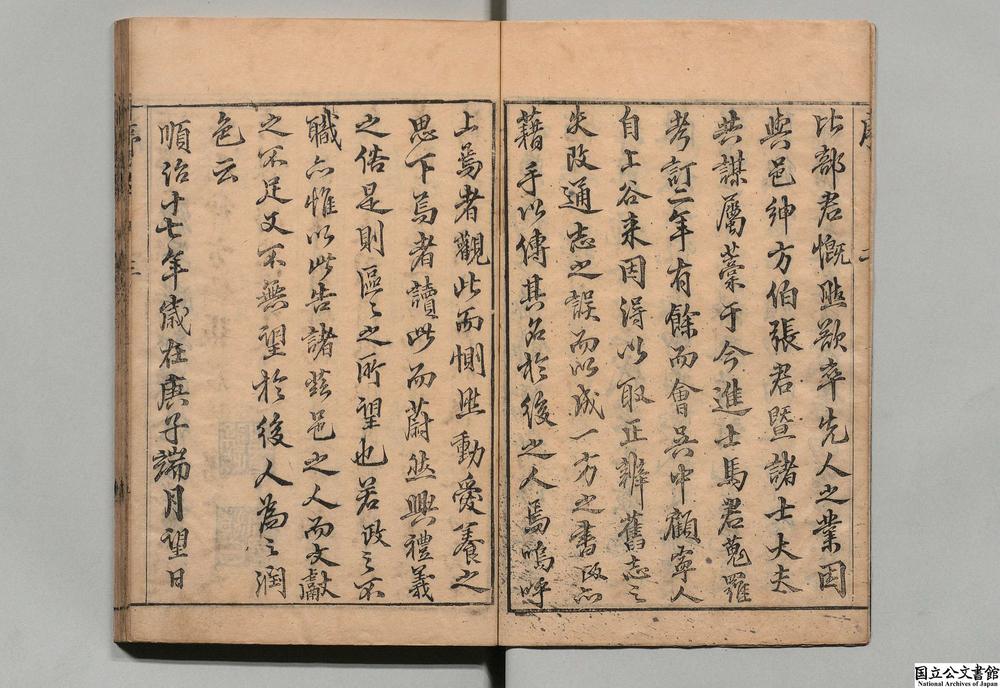 序
二
比部君慨然欲卒先人之業因
與邑紳方伯張君暨諸士大夫
共謀屬藁于今進士馬君蒐羅
考訂二年有餘而會吳中顧寧人
自上谷来因得以取正辨舊志之
失改通志之誤而以成一方之書政亦
藉手以傳其名於後之人焉嗚呼
上焉者觀此而惻然動愛養之
思下焉者讀此而蔚然興禮義
之俗是則區〻之所望也若政之不
職亦惟以此告諸茲邑之人而文獻
之不足又不無望於後人為之潤
色云
順治十七年歲在庚子端月望日
序
三
国立公文書館
National Archives of Japan